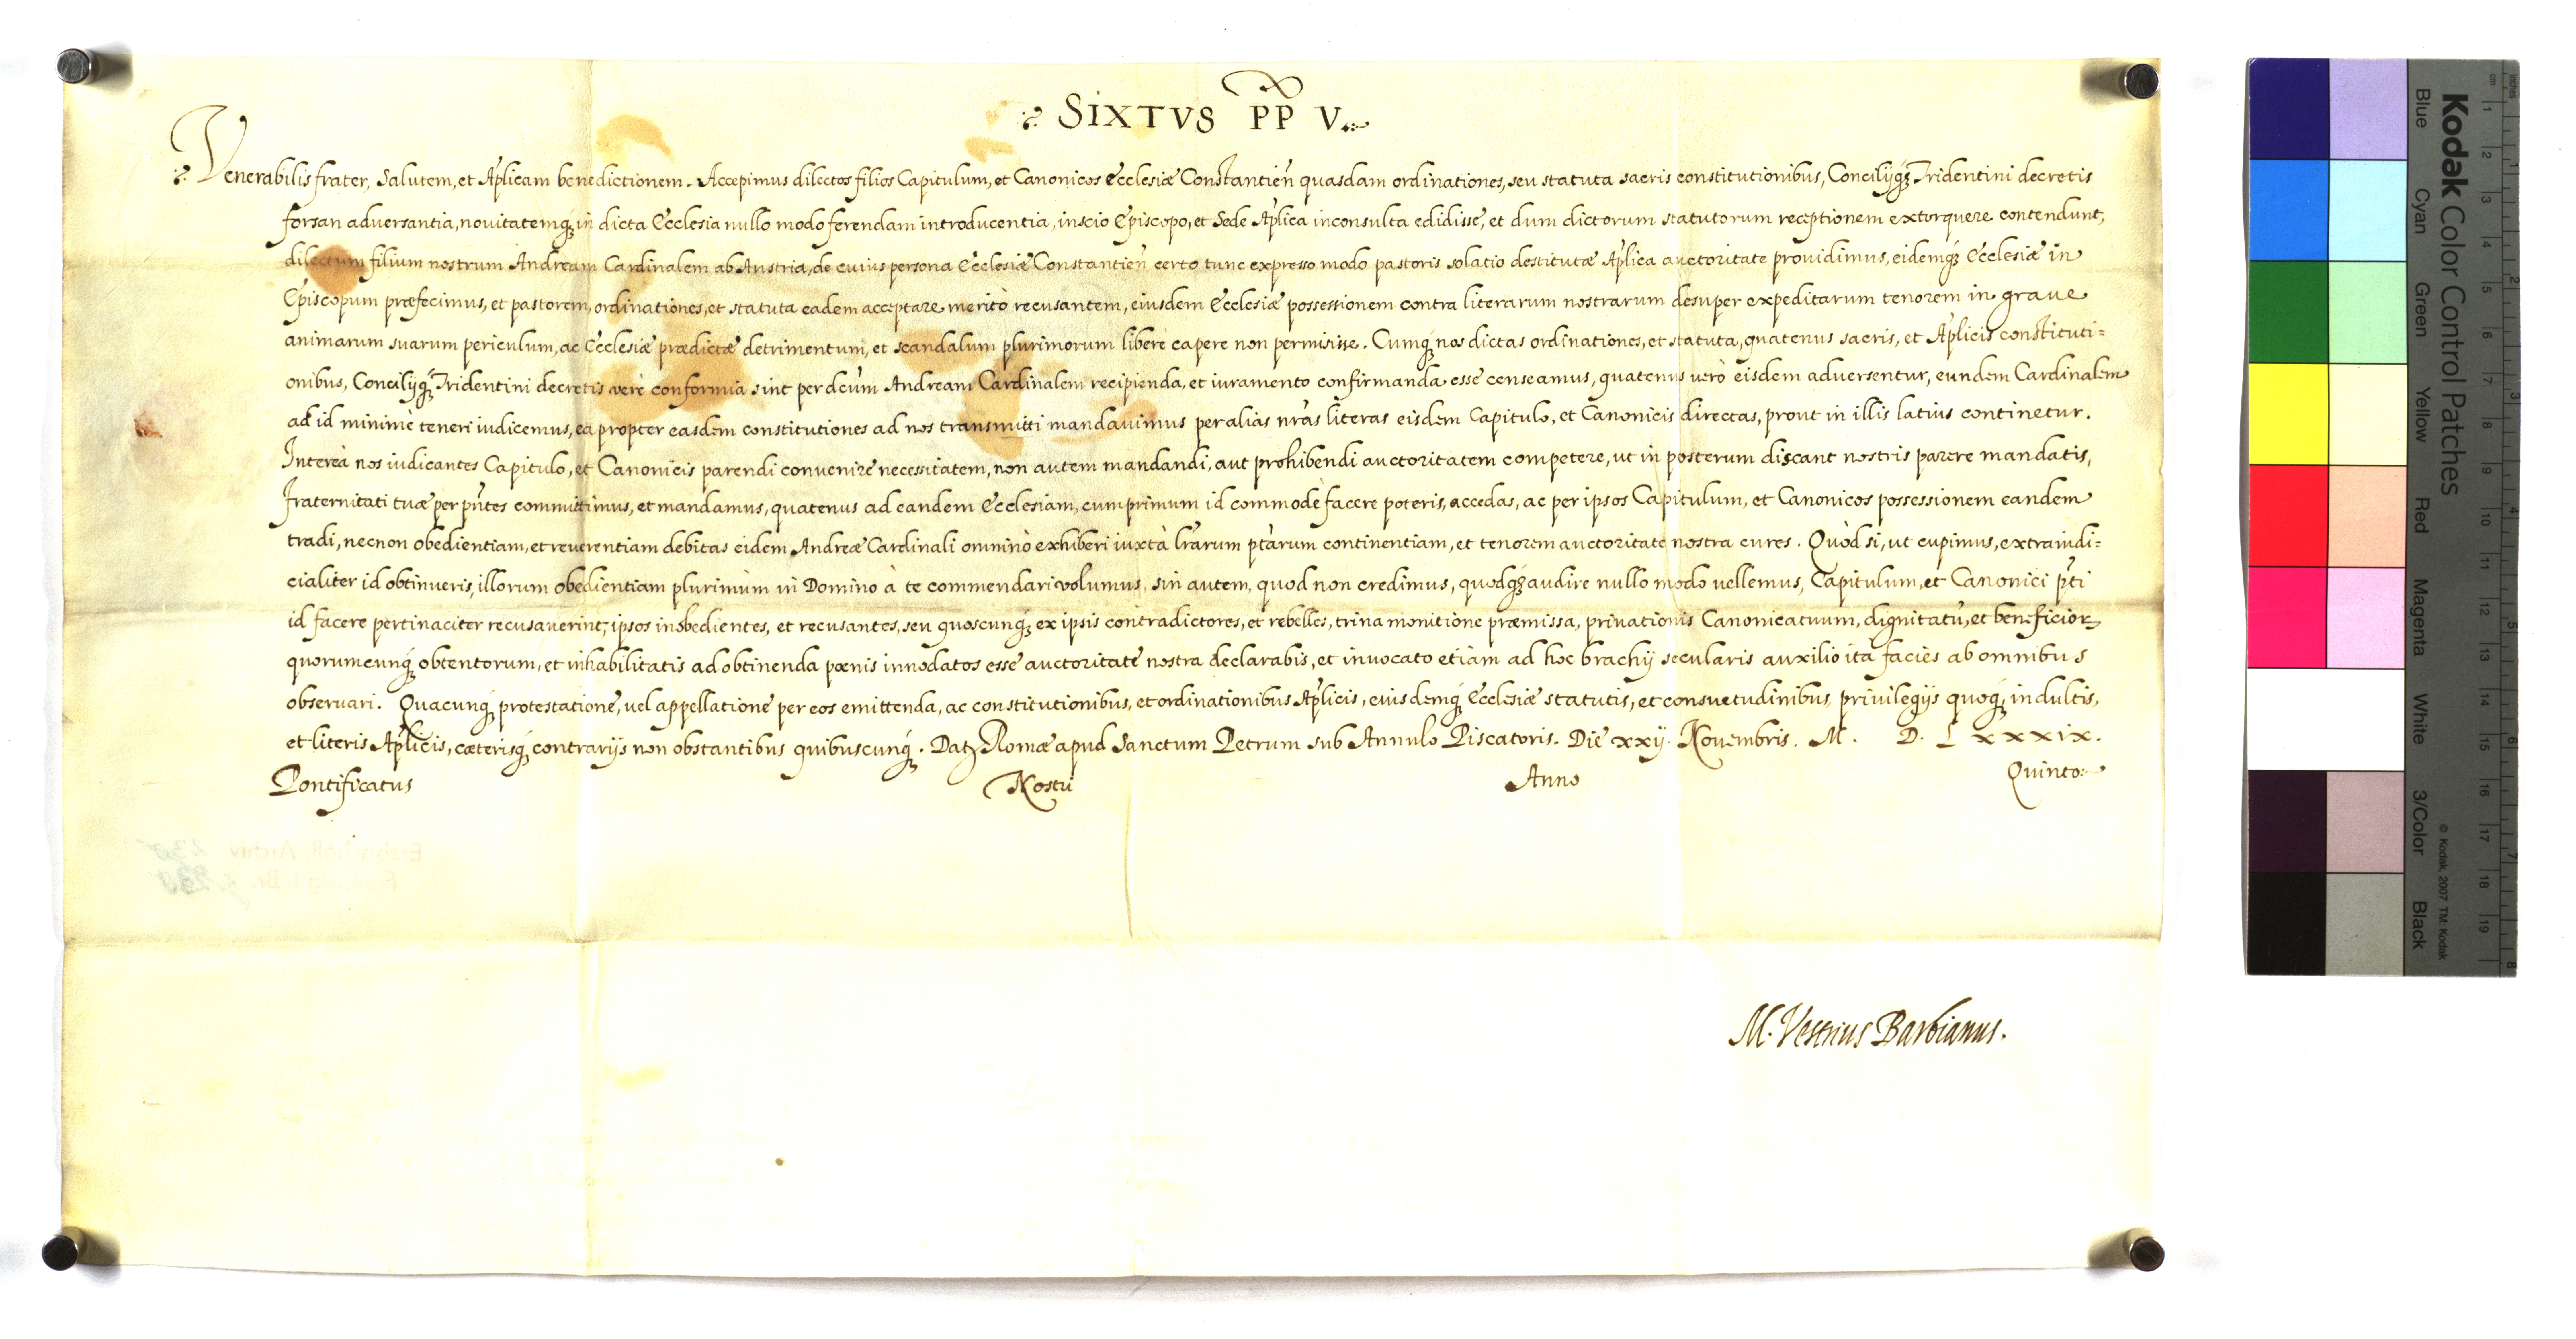 SIXTVS PP V.
Venerabilis frater, Salutem, et Aplicam benedictionem. Accepimus dilectos filios Capitulum, et Canonicos Ecclesiæ Constantień quasdam ordinationes, seu statuta sacris constitutionibus, Concilijq́; Tridentini decretis
forsan aduersantia, nouitatemq́; in dicta Ecclesia nullo modo ferendam introducentia, inscio Episcopo, et Sede Aplica inconsulta edidisse, et dum dictorum statutorum receptionem extorquere contendunt,
dilectum filium nostrum Andream Cardinalem ab Austria, de cuius persona Ecclesiæ Constantień certo tunc expresso modo pastoris solatio destitutæ Aplica auctoritate prouidimus, eidemq́; Ecclesiæ in
Episcopum præfecimus, et pastorem, ordinationes, et statuta eadem acceptare meritò recusantem, eiusdem Ecclesiæ possessionem contra literarum nostrarum desuper expeditarum tenorem in graue
animarum suarum periculum, ac Ecclesiæ prædictæ detrimentum, et scandalum plurimorum liberè capere non permisisse. Cumq́; nos dictas ordinationes, et statuta, quatenus sacris, et Aplicis constituti=
onibus, Concilijq́; Tridentini decretis verè conformia sint per dcum Andream Cardinalem recipienda, et iuramento confirmanda esse censeamus, quatenus verò eisdem aduersentur, eundem Cardinalem
ad id minimè teneri iudicemus, ea propter easdem constitutiones ad nos transmitti mandauimus per alias nrãs literas eisdem Capitulo, et Canonicis directas, prout in illis latius continetur.
Interea nos iudicantes Capitulo, et Canonicis parendi conuenire necessitatem, non autem mandandi, aut prohibendi auctoritatem competere, ut in posterum discant nostris parere mandatis,
fraternitati tuæ per pñtes committimus, et mandamus, quatenus ad eandem Ecclesiam, cum primum id commodè facere poteris, accedas, ac per ipsos Capitulum, et Canonicos possessionem eandem
tradi, necnon obedientiam, et reuerentiam debitas eidem Andreæ Cardinali omninò exhiberi iuxtà lrãrum ptãrum continentiam, et tenorem auctoritate nostra cures. Quòd si, ut cupimus, extraiudi=
cialiter id obtinueris, illorum obedientiam plurimùm in Domino à te commendari volumus, sin autem, quod non credimus, quodq́; audire nullo modo vellemus, Capitulum, et Canonici pti
id facere pertinaciter recusauerint, ipsos inobedientes, et recusantes, seu quoscunq́; ex ipsis contradictores, et rebelles, trina monitione præmissa, priuationis Canonicatuum, dignitatũ, et beneficioꝝ
quorumcunq́; obtentorum, et inhabilitatis ad obtinenda pœnis innodatos esse auctoritate nostra declarabis, et inuocato etiàm ad hoc brachij secularis auxilio ita facies ab omnibus
obseruari. Quacunq́; protestatione, uel appellatione per eos emittenda, ac constitutionibus, et ordinationibus Aplicis, eiusdemq́; Ecclesiæ statutis, et consuetudinibus, priuilegijs quoq́; indultis,
et literis Aplicis, cæterisq́; contrarijs non obstantibus quibuscunq́;. Datꝫ Romæ apud Sanctum Petrum sub Annulo Piscatoris. Die xxij. Nouembris. M. D. Lxxxix.
Pontificatus Nostri Anno Quinto.
M. Vestrius Barbianus.
Kodak Color Control Patches
Blue Cyan Green Yellow Red Magenta White 3/Color Black
© Kodak, 2007 TM: Kodak
cm 1 2 3 4 5 6 7 8 9 10 11 12 13 14 15 16 17 18 19
inches 1 2 3 4 5 6 7 8